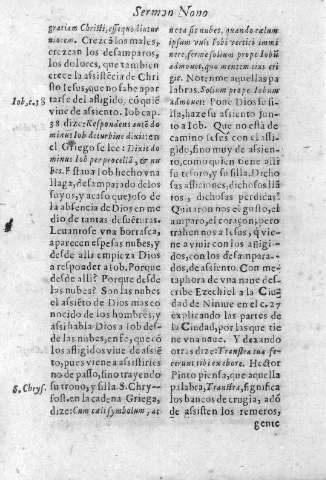 Sermon Nono
gratiam Christi, essequo diutur
niorem. Crezcã los males,
crezcan los desamparos,
los dolores, que tambien
crece la assistẽcia de Chri
sto Iesus, que no sabe apar
tarse del afligido, cõ quiẽ
viue de assiento. Iob cap.
38 dize: Respondens autẽ do
minus Iob de turbine dixit: en
el Griego se lee: Dixit do
minus Iob per procellã, & nu
bes. Estaua Iob hecho vna
llaga, desamparado de los
suyos, y acaso quexoso de
la absencia de Dios en me
dio de tantas desuẽturas.
Leuantose vna borrasca,
aparecen espesas nubes, y
desde alla empieza Dios
a respõder a Iob. Porque
desde alli? Porque desde
las nubes? Son las nubes
el assiẽto de Dios mas co
nocido de los hombres, y
assi habla Dios a Iob des-
de las nubes, en fe, que cõ
los afligidos viue de assiẽ
to, pues viene a assistirles
no de passo, sino trayendo
su trono, y silla. S. Chry-
sost. en la cadena Griega,
dize: Cum cæli symbolum, ac
Iob, c. 38
S. Chrys.
nota sit nubes, quando cœlum
ipsum vnis Iobi vertici immi
nere, ferme solium prope Iobũ
admouet, quo mentem eius eri
git. Notenme aquellas pa
labras. Solium prope Iobum
admouet: Pone Dios su si-
lla, haze su assiento Iun-
to a Iob. Que no està de
camino Iesus con el afli-
gido, sino muy de assien-
to, como quien tiene alli
su tesoro, y su silla. Dicho
sas afliciones, dichosos llã
tos, dichosas perdidas!
Quitaron nos el gusto, el
amparo, el coraçon; pero
trahen nos a Iesus, q̃ vie-
ne a vmir con los afligi-
dos, con los desampara-
dos, de assiento. Con me-
taphora de vna naue des-
cribe Ezechiel a la Ciu-
dad de Niniue en el c. 27
explicando las partes de
la Ciudad, por las que tie
ne vna naue. Y dexando
otras dize: Transtra tua fe-
cerunt tibi ex ebore. Hector
Pinto piensa, que aquella
palabra, Transtra, significa
los bancos de crugia, adõ
de assisten los remeros,
gente